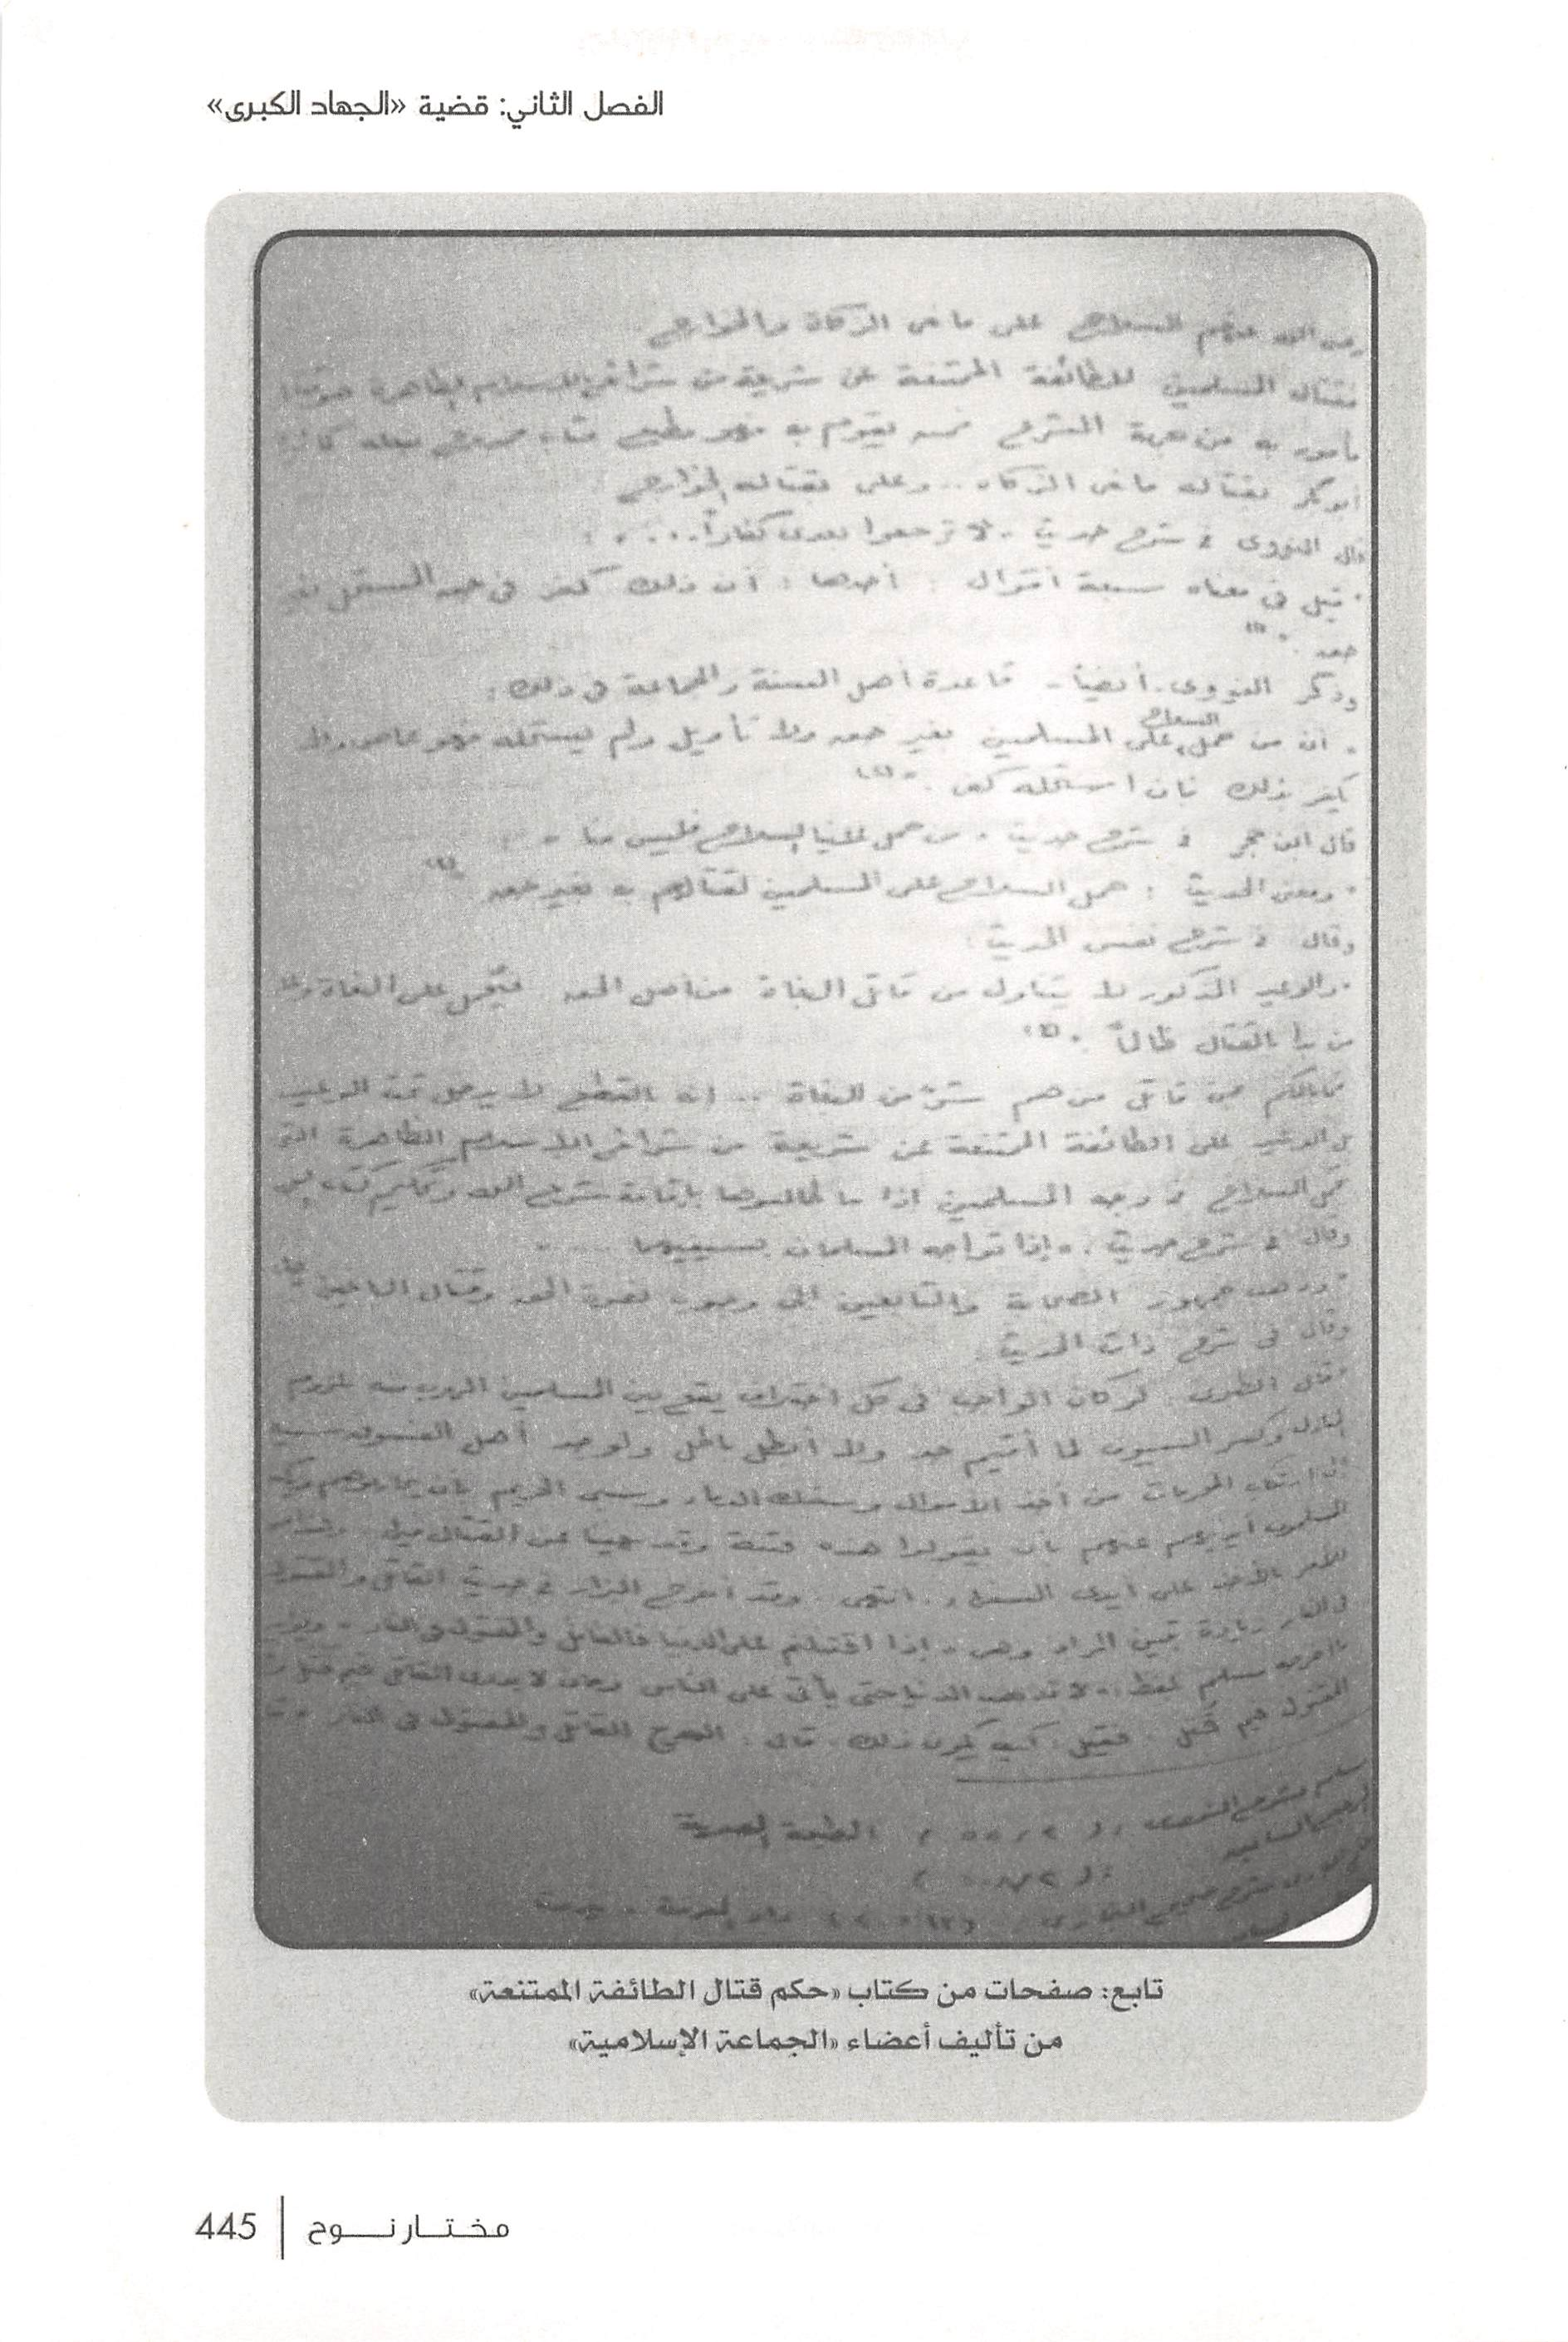 الفصل الثاني: قضية «الجهاد الكبرى»
عنهم السلاح على مانعى الزكاة والخوارج
فقتال المسلمين للطائفة الممتنعة عن شريعة من شرائع الإسلام الظاهرة
مأمور به من جهة الشرع فمن يقوم به فهو مطيع مثاب
أبو بكر بقتاله مانعى الزكاة .. وعلى بقتاله الخوارج
قال النووى فى شرح حديث .. لا ترجعوا بعدى كفاراً .. :
" قيل فى معناه سبعة أقوال : أحدها : أن ذلك كفر فى حق المستحل بغير
حق . "(١)
وذكر النووى - أيضاً - قاعدة أهل السنة والجماعة فى ذلك :
" أن من حمل السلاح على المسلمين بغير حق ولا تأويل ولم يستحله فهو عاص ولا
يكفر بذلك فان استحله كفر . "(٢)
قال ابن حجر فى شرح حديث " من حمل علينا السلاح فليس منا " :
" ومعنى الحديث : حمل السلاح على المسلمين لقتالهم به بغير حق
وقال فى شرح نفس الحديث :
" والوعيد المذكور لا يتناول من قاتل البغاة من أهل الحق فيحمل على البغاة وعلى
من بدأ بالقتال ظالماً . "
فما بالكم بمن قاتل من هم شرٌ من البغاة .. إنه بالقطع لا يدخل تحت الوعيد
بل الوعيد على الطائفة الممتنعة عن شريعة من شرائع الإسلام الظاهرة التى
تحمل السلاح فى وجه المسلمين إذا ما طالبوها بإقامة شرع الله وتحكيم كتابه
وقال فى شرح حديث : " إذا تواجه المسلمان بسيفيهما
" وذهب جمهور الصحابة والتابعين الى وجوب نصرة الحق وقتال الباغين
وقال فى شرح ذات الحديث :
" قال الطبرى : لو كان الواجب فى كل اختلاف يقع بين المسلمين الهرب منه بلزوم
المنازل وكسر السيوف لما أقيم حد ولا أبطل باطل ولوجد أهل الفسوق سبيلا
إلى ارتكاب المحرمات من أخذ الأموال وسفك الدماء وسبى الحريم بأن يحاربوهم ويكف
المسلمون أيديهم عنهم بأن يقولوا هذه فتنة وقد نهينا عن القتال فيها
للأمر بالأخذ على أيدى السفهاء . انتهى . وقد أخرج البزار فى حديث القاتل والمقتول
فى النار زيادة تبين المراد وهى " إذا اقتتلتم على الدنيا فالقاتل والمقتول فى النار "
ما أخرجه مسلم بلفظ : " لا تذهب الدنيا حتى يأتى على الناس زمان لا يدرى القاتل فيم قتل ولا
المقتول فيم قتل . فقيل : كيف يكون ذلك ، قال : الهرج القاتل والمقتول فى النار
مسلم بشرح النووى الطبعة المصرية
فتح البارى شرح صحيح البخارى دار المعرفة - بيروت
تابع: صفحات من كتاب «حكم قتال الطائفة الممتنعة»
من تأليف أعضاء «الجماعة الإسلامية»
مختار نوح | 445